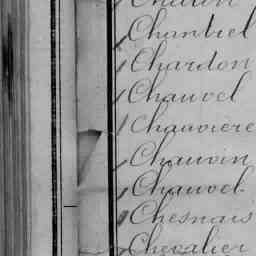 Chantrel
Chardon
Chauvel
Chauvière
Chauvin
Chauvel
Chesnais
Chevalier